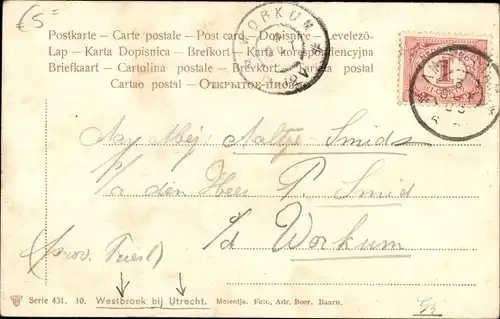 £5=
Postkarte – Carte postale – Post card – Dopisnice – Levelező-
Lap – Karta Dopisnica – Brefkort – Karta korespondencyjna
Briefkaart – Cartolina postale – Brevkort – Cartolina postal
Cartao postal – Открытое письмо
WORKUM
12V
1
Mej. Aaltje Smids
p/a den Heer P. Smid
Workum
(prov. Friesl)
Serie 431. 10. Westbroek bij Utrecht. Momentje. Foto, Adr. Boer, Baarn.